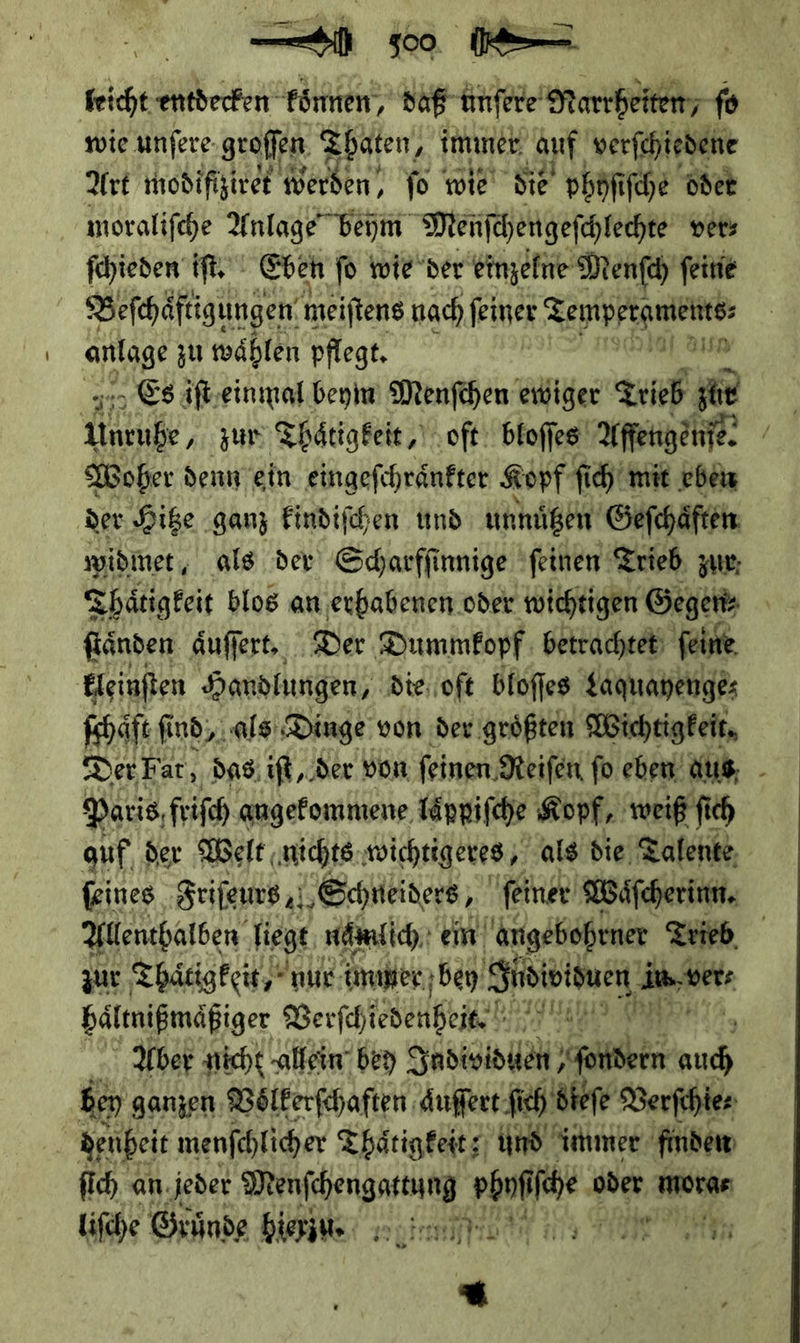 500
leicht entdecken können, daß unsere Narrheiten, so
wie unsere grossen Thaten, immer auf verschiedene
Art modifiziret werden, so wie die physische oder
moralische Anlage beym Menschengeschlechte ver⸗
schieden ist. Eben so wie der einzelne Mensch seine
Beschäftigungen meistens nach seiner Temperaments⸗
anlage zu wählen pflegt.
Es ist einmal beym Menschen ewiger Trieb zur
Unruhe, zur Thätigkeit, oft blosses Affengenie.
Woher denn ein eingeschränkter Kopf sich mit eben
der Hitze ganz kindischen und unnützen Geschäften
widmet, als der Scharfsinnige seinen Trieb zur
Thätigkeit blos an erhabenen oder wichtigen Gegen⸗
ständen äussert. Der Dummkopf betrachtet seine
kleinsten Handlungen, die oft blosses Laquayenge⸗
schäft sind, als Dinge von der größten Wichtigkeit.
Der Fat, das ist, der von seinen Reisen so eben aus
Paris frisch angekommene läppische Kopf, weiß sich
auf der Welt nichts wichtigeres, als die Talente
seines Friseurs, Schneiders, seiner Wäscherinn.
Allenthalben liegt nämlich ein angebohrner Trieb
zur Thätigkeit, nur immer bey Individuen in ver⸗
hältnißmäßiger Verschiedenheit.
Aber nicht allein bey Individuen, sondern auch
bey ganzen Völkerschaften äussert sich diese Verschie⸗
denheit menschlicher Thätigkeit; und immer finden
sich an jeder Menschengattung physische oder mora⸗
lische Gründe hierzu.